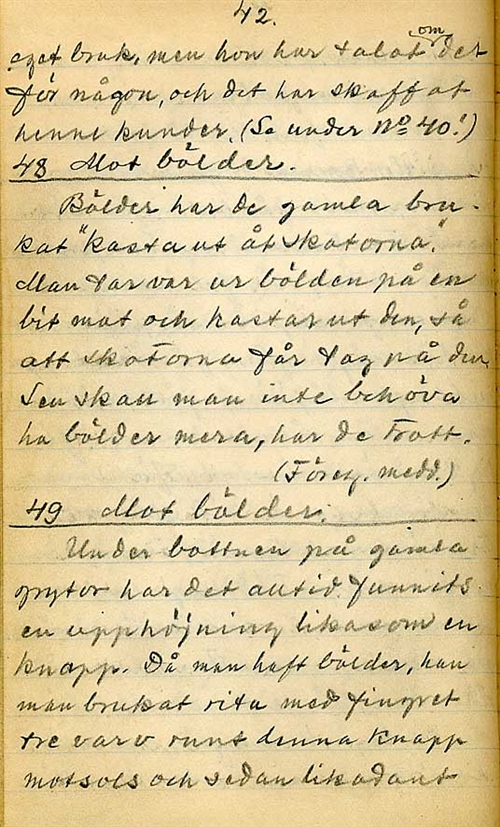 42.
eget bruk, men hon har talat om det
för någon, och det har skaffat
henne kunder. (Se under No 40!)
48 Mot bölder.
Bölder har de gamla bru-
kat "kasta ut åt skatorna."
Man tar var ur bölden på en
bit mat och kastar ut den, så
att skatorna får tag på den.
Sen skall man inte behöva
ha bölder mera, har de trott.
(Föreg. medd.)
49 Mot bölder.
Under bottnen på gamla
grytor har det alltid funnits
en upphöjning liksom en
knapp. Då man haft bölder, har
man brukat rita med fingret
tre varv runt denna knapp
motsols och sedan likadant